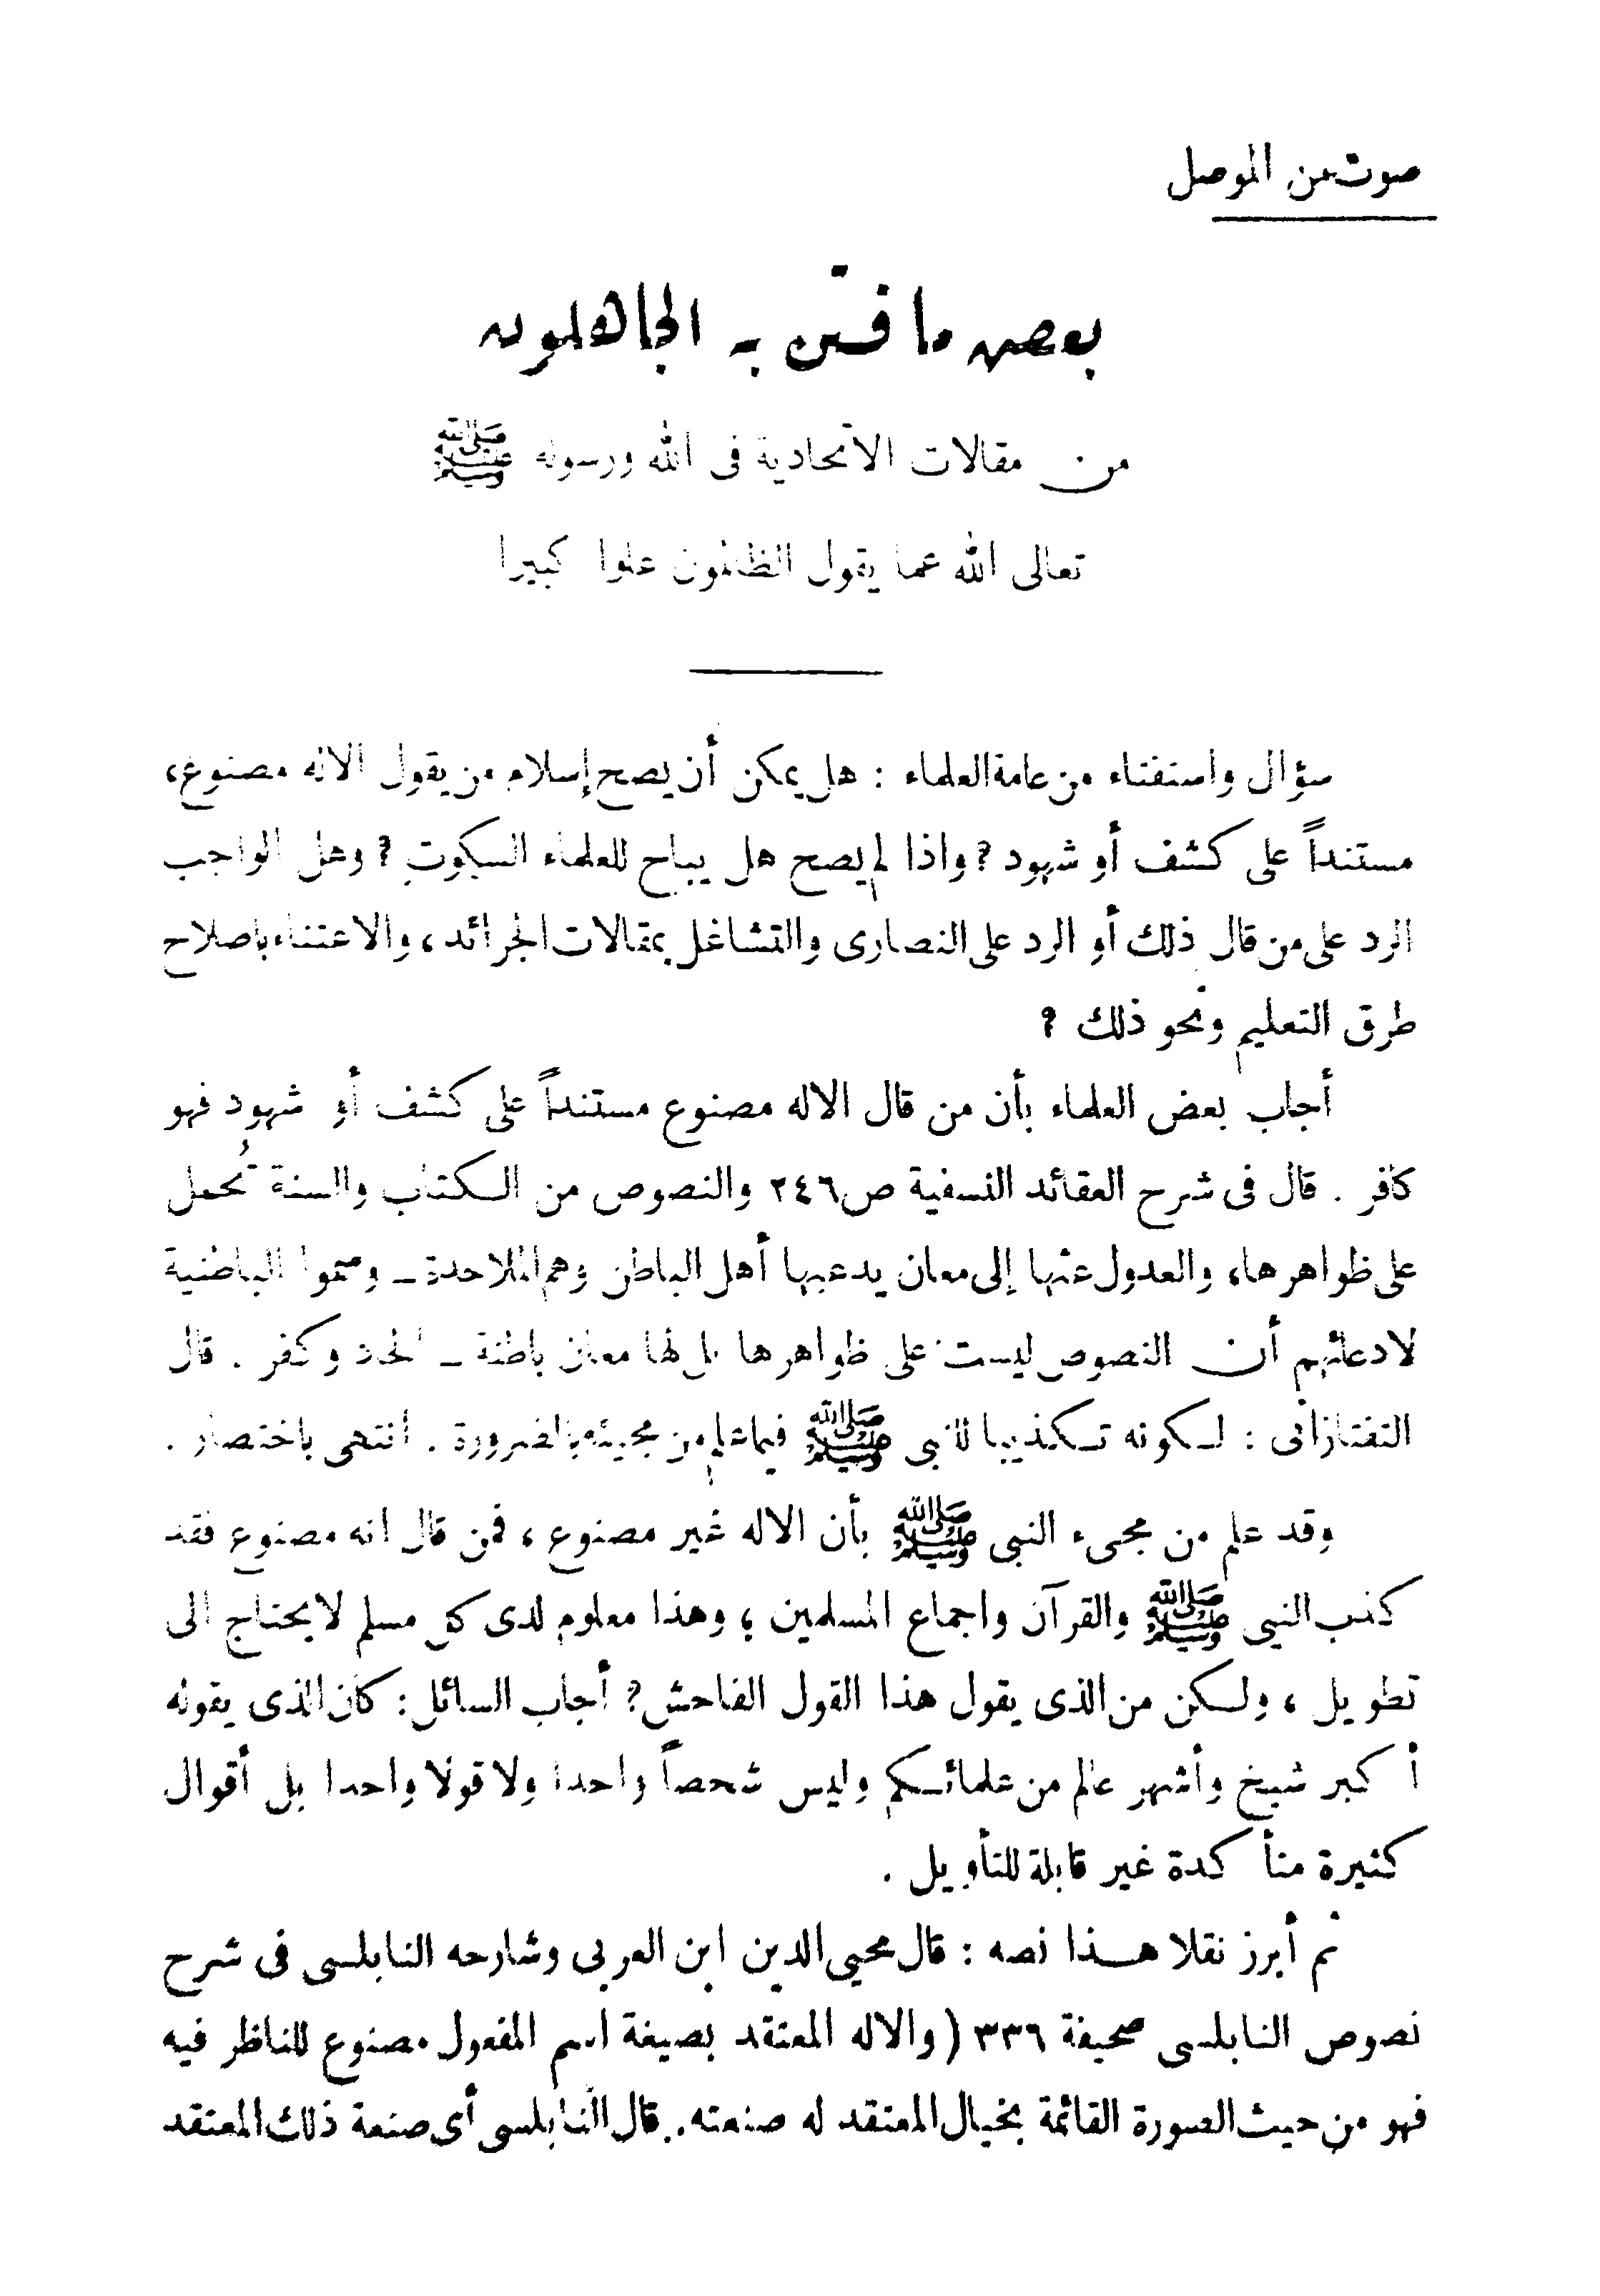 صوت من الموصل
بعض ما فتن به الجاهلون
من مقالات الاتحادية فى الله ورسوله ﷺ
تعالى الله عما يقول الظالمون علوا كبيرا
سؤال واستفتاء من عامة العلماء : هل يمكن أن يصح إسلام من يقول الاله مصنوع،
مستنداً على كشف أو شهود ? واذا لم يصح هل يباح للعلماء السكوت ? وهل الواجب
الرد على من قال ذلك أو الرد على النصارى والتشاغل بمقالات الجرائد، والاعتناء باصلاح
طرق التعليم ونحو ذلك ?
أجاب بعض العلماء بأن من قال الاله مصنوع مستنداً على كشف أو شهود فهو
كافر . قال فى شرح العقائد النسفية ص٢٤٦ والنصوص من الكتاب والسنة تُحمل
على ظواهرها، والعدول عنها إلى معان يدعيها أهل الباطن وهم الملاحدة ـ وسموا الباطنية
لادعائهم أن النصوص ليست على ظواهرها بل لها معان باطنة ـ الحاد وكفر . قال
التفتازانى : لكونه تكذيبا للنبى ﷺ فيما علم من مجيئه بالضرورة . انتهى باختصار .
وقد علم من مجىء النبى ﷺ بأن الاله غير مصنوع ، فمن قال انه مصنوع فقد
كذب النبى ﷺ والقرآن واجماع المسلمين ؛ وهذا معلوم لدى كل مسلم لا يحتاج الى
تطويل ، ولكن من الذى يقول هذا القول الفاحش? أجاب السائل: كان الذى يقوله
أكبر شيخ وأشهر عالم من علمائكم وليس شخصاً واحدا ولا قولا واحدا بل أقوال
كثيرة متأكدة غير قابلة للتأويل .
ثم أبرز نقلا هذا نصه : قال محيى الدين ابن العربى وشارحه النابلسى فى شرح
نصوص النابلسى صحيفة ٣٣٦ (والاله المعتقد بصيغة اسم المفعول مصنوع للناظر فيه
فهو من حيث الصورة القائمة بخيال المعتقد له صنعته.. قال النابلسى أى صنعة ذلك المعتقد